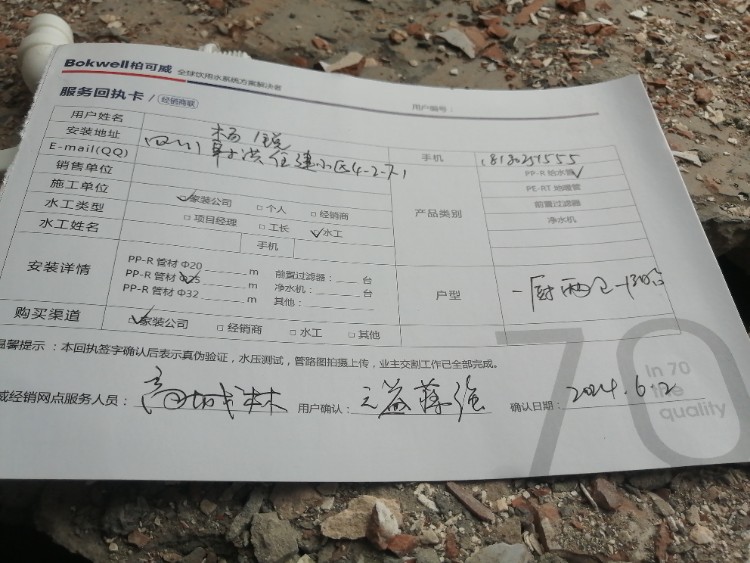 Bokwell柏可威 全球饮用水系统方案解决者
服务回执卡 / 经销商联 用户编号：
用户姓名 杨 锐
安装地址 四川 射洪住建小区4-2-7-1 手机 18130251555
E-mail(QQ) PP-R给水管
销售单位 产品类别 PE-RT地暖管
施工单位 ☑家装公司 □个人 □经销商 前置过滤器
水工类型 □项目经理 □工长 ☑水工 净水机
水工姓名 手机
安装详情 PP-R管材Φ20 m 前置过滤器： 台
PP-R管材Φ25 m 净水机： 台 户型 一厨两卫一阳台
PP-R管材Φ32 m 其他：
购买渠道 ☑家装公司 □经销商 □水工 □其他
温馨提示：本回执签字确认后表示真伪验证，水压测试，管路图拍摄上传，业主交割工作已全部完成。
威经销网点服务人员： 用户确认： 确认日期：2024.6.2
70
In 70
life
quality